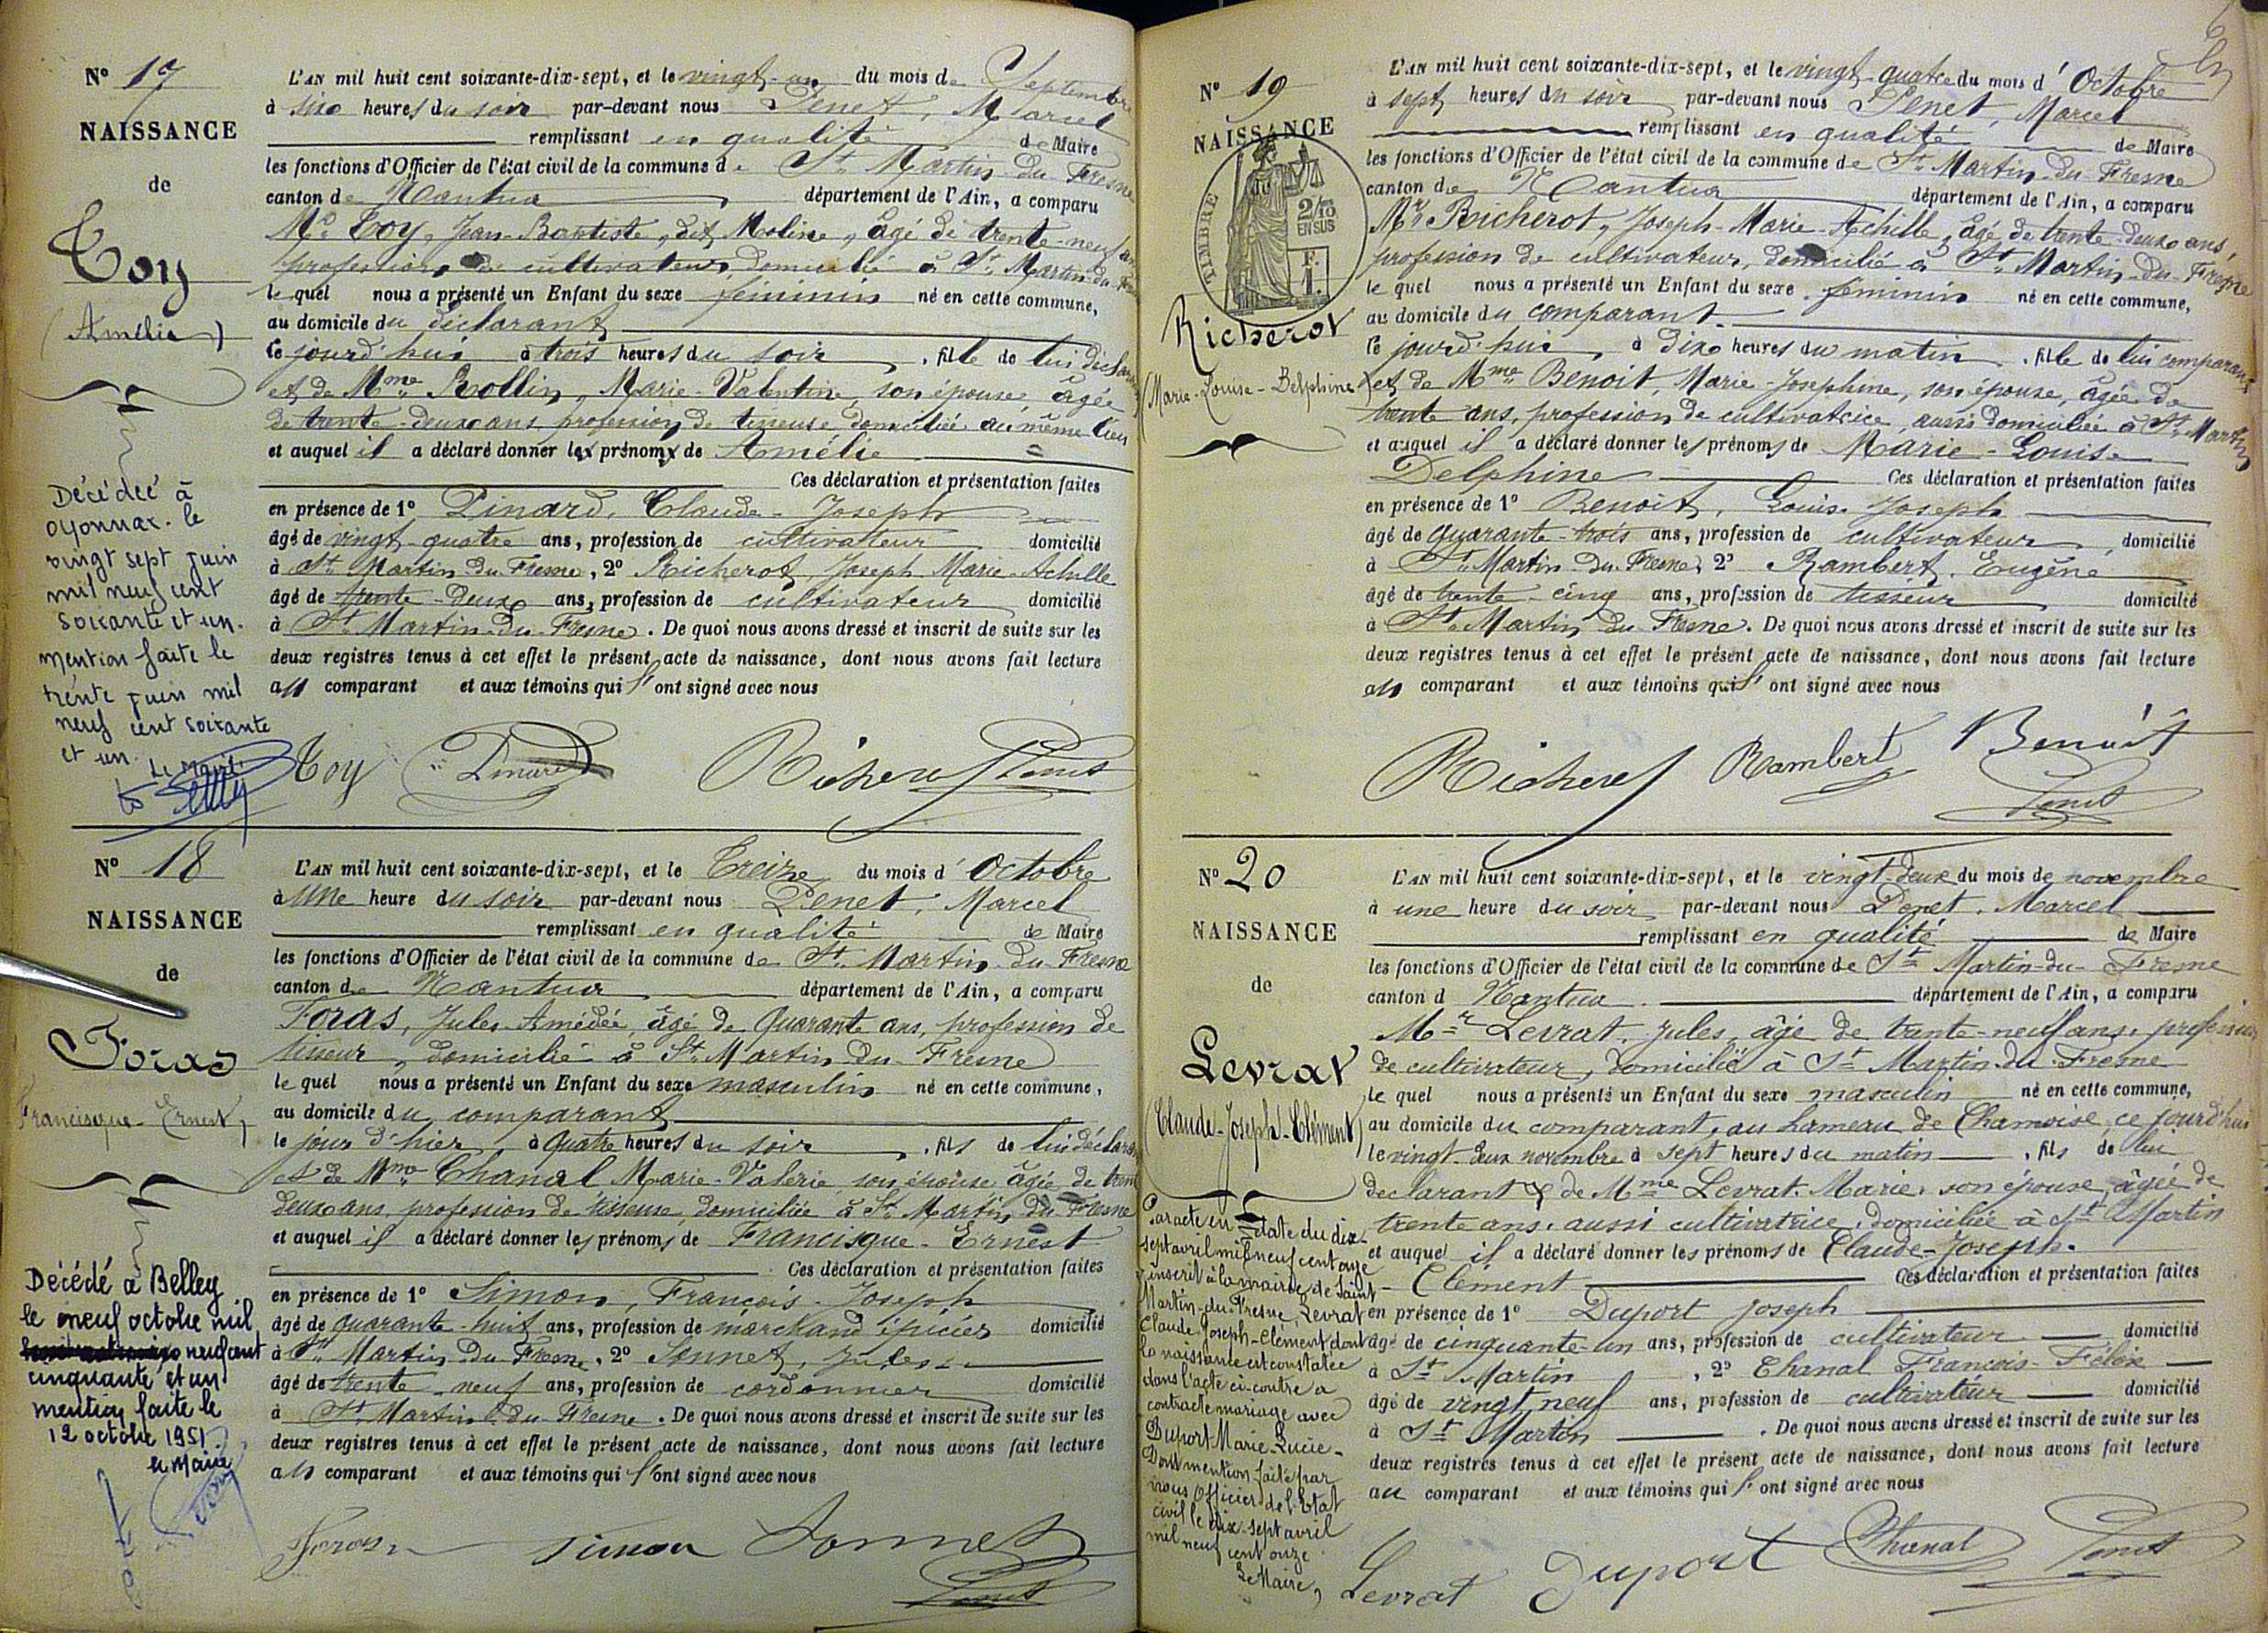 Nº 17
NAISSANCE
de
Toy
(Amélie)
Décédée à
oyonnax. le
vingt sept juin
mil neuf cent
soixante et un.
mention faite le
trente juin mil
neuf cent soixante
et un.
Le Maire
L'AN mil huit cent soixante-dix-sept, et le vingt-un du mois de Septembre
à six heures du soir par-devant nous Penet, Marcel
remplissant en qualité de Maire
les fonctions d'Officier de l'état civil de la commune de St. Martin-du-Fresne
canton de Nantua département de l'Ain, a comparu
Mr. Toy, Jean-Baptiste, dit Moline, âgé de trente-neuf ans
profession de cultivateur, domicilié à St. Martin-du-Fresne
lequel nous a présenté un Enfant du sexe féminin né en cette commune,
au domicile du déclarant
ce jourd'hui à trois heures du soir, fille de lui déclarant
et de Mme Rollin, Marie-Valentine, son épouse âgée
de trente-deux ans, profession de tisseuse domiciliée au même lieu
et auquel il a déclaré donner les prénoms de Amélie
Ces déclaration et présentation faites
en présence de 1º Pinard, Claude-Joseph
âgé de vingt-quatre ans, profession de cultivateur domicilié
à St. Martin-du-Fresne, 2º Richerot, Joseph-Marie-Achille
âgé de trente-deux ans, profession de cultivateur domicilié
à St. Martin-du-Fresne. De quoi nous avons dressé et inscrit de suite sur les
deux registres tenus à cet effet le présent acte de naissance, dont nous avons fait lecture
aux comparant et aux témoins qui l'ont signé avec nous
Toy Pinard Richerot Penet
Nº 18
NAISSANCE
de
Foras
Francisque-Ernest
Décédé à Belley
le neuf octobre mil
neuf cent
cinquante et un
mention faite le
12 octobre 1951
le Maire
L'AN mil huit cent soixante-dix-sept, et le Treize du mois d'Octobre
à une heure du soir par-devant nous Penet, Marcel
remplissant en qualité de Maire
les fonctions d'Officier de l'état civil de la commune de St. Martin-du-Fresne
canton de Nantua département de l'Ain, a comparu
Foras, Jules-Amédée, âgé de Quarante ans, profession de
tisseur, domicilié à St. Martin-du-Fresne
lequel nous a présenté un Enfant du sexe masculin né en cette commune,
au domicile du comparant
le jour d'hier à quatre heures du soir, fils de lui déclarant
et de Mme Chanal Marie-Valérie son épouse âgée de trente
deux ans, profession de tisseuse, domiciliée à St. Martin-du-Fresne
et auquel il a déclaré donner les prénoms de Francisque-Ernest
Ces déclaration et présentation faites
en présence de 1º Simon, François-Joseph
âgé de quarante-huit ans, profession de marchand épicier domicilié
à St. Martin-du-Fresne, 2º Sonnet, Jules
âgé de trente-neuf ans, profession de cordonnier domicilié
à St. Martin-du-Fresne. De quoi nous avons dressé et inscrit de suite sur les
deux registres tenus à cet effet le présent acte de naissance, dont nous avons fait lecture
aux comparant et aux témoins qui l'ont signé avec nous
Foras simon Sonnet
Penet
Nº 19
NAISSANCE
de
TIMBRE
2/10
EN SUS
F.
1.
Richerot
(Marie-Louise-Delphine)
L'AN mil huit cent soixante-dix-sept, et le vingt-quatre du mois d'Octobre
à sept heures du soir par-devant nous Penet, Marcel
remplissant en qualité de Maire
les fonctions d'Officier de l'état civil de la commune de St. Martin-du-Fresne
canton de Nantua département de l'Ain, a comparu
Mr. Richerot, Joseph-Marie-Achille, âgé de trente-deux ans,
profession de cultivateur, domicilié à St. Martin-du-Fresne
lequel nous a présenté un Enfant du sexe féminin né en cette commune,
au domicile du comparant
ce jourd'hui, à dix heures du matin, fille de lui comparant
et de Mme Benoit, Marie-Josephine, son épouse, âgée de
trente ans, profession de cultivatrice, aussi domiciliée à St. Martin
et auquel il a déclaré donner les prénoms de Marie-Louise
Delphine Ces déclaration et présentation faites
en présence de 1º Benoit, Louis-Joseph
âgé de Quarante-trois ans, profession de cultivateur, domicilié
à St. Martin-du-Fresne, 2º Rambert, Eugène
âgé de trente-cinq ans, profession de tisseur domicilié
à St. Martin-du-Fresne. De quoi nous avons dressé et inscrit de suite sur les
deux registres tenus à cet effet le présent acte de naissance, dont nous avons fait lecture
aux comparant et aux témoins qui l'ont signé avec nous
Richerot Rambert Benoit
Penet
Nº 20
NAISSANCE
de
Levrat
(Claude-Joseph-Clément)
Par acte en date du dix-
sept avril mil neuf cent onze
inscrit à la mairie de Saint-
Martin-du-Fresne, Levrat
Claude Joseph-Clément dont
la naissance est constatée
dans l'acte ci-contre a
contracté mariage avec
Duport Marie-Lucie-
Dont mention faite par
nous Officier de l'Etat
civil le dix-sept avril
mil neuf cent onze
Le Maire,
L'AN mil huit cent soixante-dix-sept, et le vingt-deux du mois de novembre
à une heure du soir par-devant nous Penet. Marcel
remplissant en qualité de Maire
les fonctions d'Officier de l'état civil de la commune de St Martin-du-Fresne
canton d Nantua département de l'Ain, a comparu
Mr Levrat. Jules, âgé de trente-neuf ans, profession
de cultivateur, domicilié à St Martin-du-Fresne
lequel nous a présenté un Enfant du sexe masculin né en cette commune,
au domicile du comparant, au hameau de Chamoise, ce jourd'hui
le vingt-deux novembre à sept heures du matin, fils de lui
declarant & de Mme Levrat. Marie. son épouse, âgée de
trente ans. aussi cultivatrice, domiciliée à St Martin
et auquel il a déclaré donner les prénoms de Claude-Joseph-
-Clément Ces déclaration et présentation faites
en présence de 1º Duport Joseph
âgé de cinquante-un ans, profession de cultivateur domicilié
à St Martin, 2º Chanal François-Félix
âgé de vingt neuf ans, profession de cultivateur domicilié
à St Martin. De quoi nous avons dressé et inscrit de suite sur les
deux registres tenus à cet effet le présent acte de naissance, dont nous avons fait lecture
au comparant et aux témoins qui l'ont signé avec nous
Levrat Duport Chanal Penet